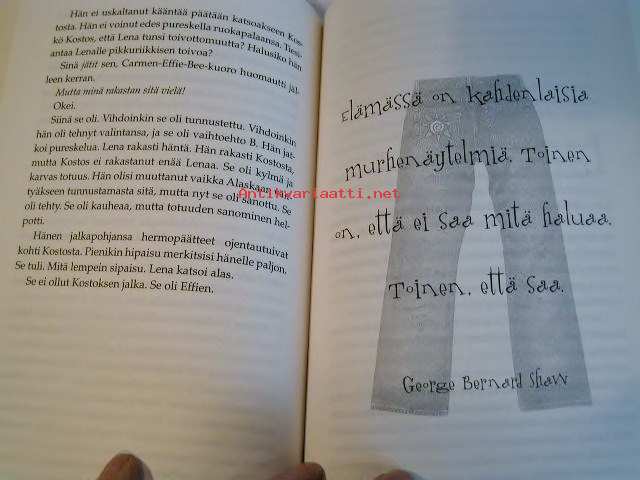 Hän ei uskaltanut kääntää päätään katsoakseen Kos-
tosta. Hän ei voinut edes pureskella ruokapalaansa. Tiesi-
kö Kostos, että Lena tunsi toivottomuutta? Halusiko hän
antaa Lenalle pikkuriikkisen toivoa?
Sinä jätit sen, Carmen-Effie-Bee-kuoro huomautti jäl-
leen kerran.
Mutta minä rakastan sitä vielä!
Okei.
Siinä se oli. Vihdoinkin se oli tunnustettu. Vihdoinkin
hän oli tehnyt valintansa, ja se oli vaihtoehto B. Hän jat-
koi pureskelua. Lena rakasti häntä. Hän rakasti Kostosta,
mutta Kostos ei rakastanut enää Lenaa. Se oli kylmä ja
karvas totuus. Hän olisi muuttanut vaikka Alaskaan
tyäkseen tunnustamasta sitä, mutta nyt se oli sanottu. Se
oli tehty. Se oli kauheaa, mutta totuuden sanominen hel-
potti.
Hänen jalkapohjansa hermopäätteet ojentautuivat
kohti Kostosta. Pienikin hipaisu merkitsisi hänelle paljon.
Se tuli. Mitä lempein sipaisu. Lena katsoi alas.
Se ei ollut Kostoksen jalka. Se oli Effien.
Antikvariaatti.net
Elämässä on kahdenlaisia
murhenäytelmiä. Toinen
on, että ei saa mitä haluaa.
Toinen, että saa.
George Bernard Shaw